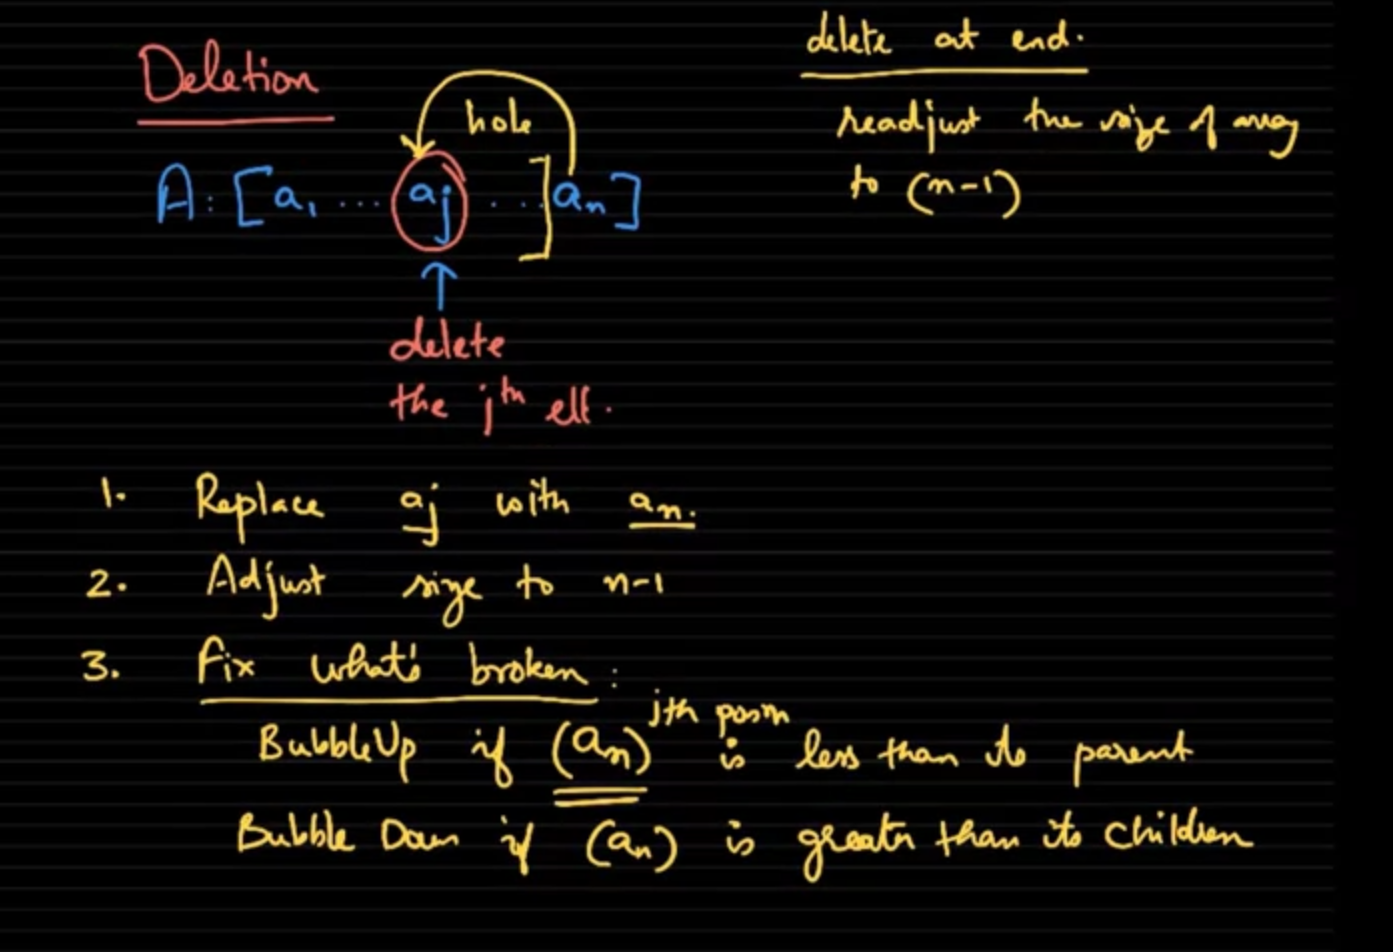 Deletion
hole
A: [a₁ ... aj ... ] aₙ]
delete
the jth ell.
delete at end.
readjust the size of array
to (n-1)
1. Replace aj with an.
2. Adjust size to n-1
3. Fix what's broken :
jth posn
BubbleUp if (an) is less than its parent
Bubble Down if (an) is greater than its children